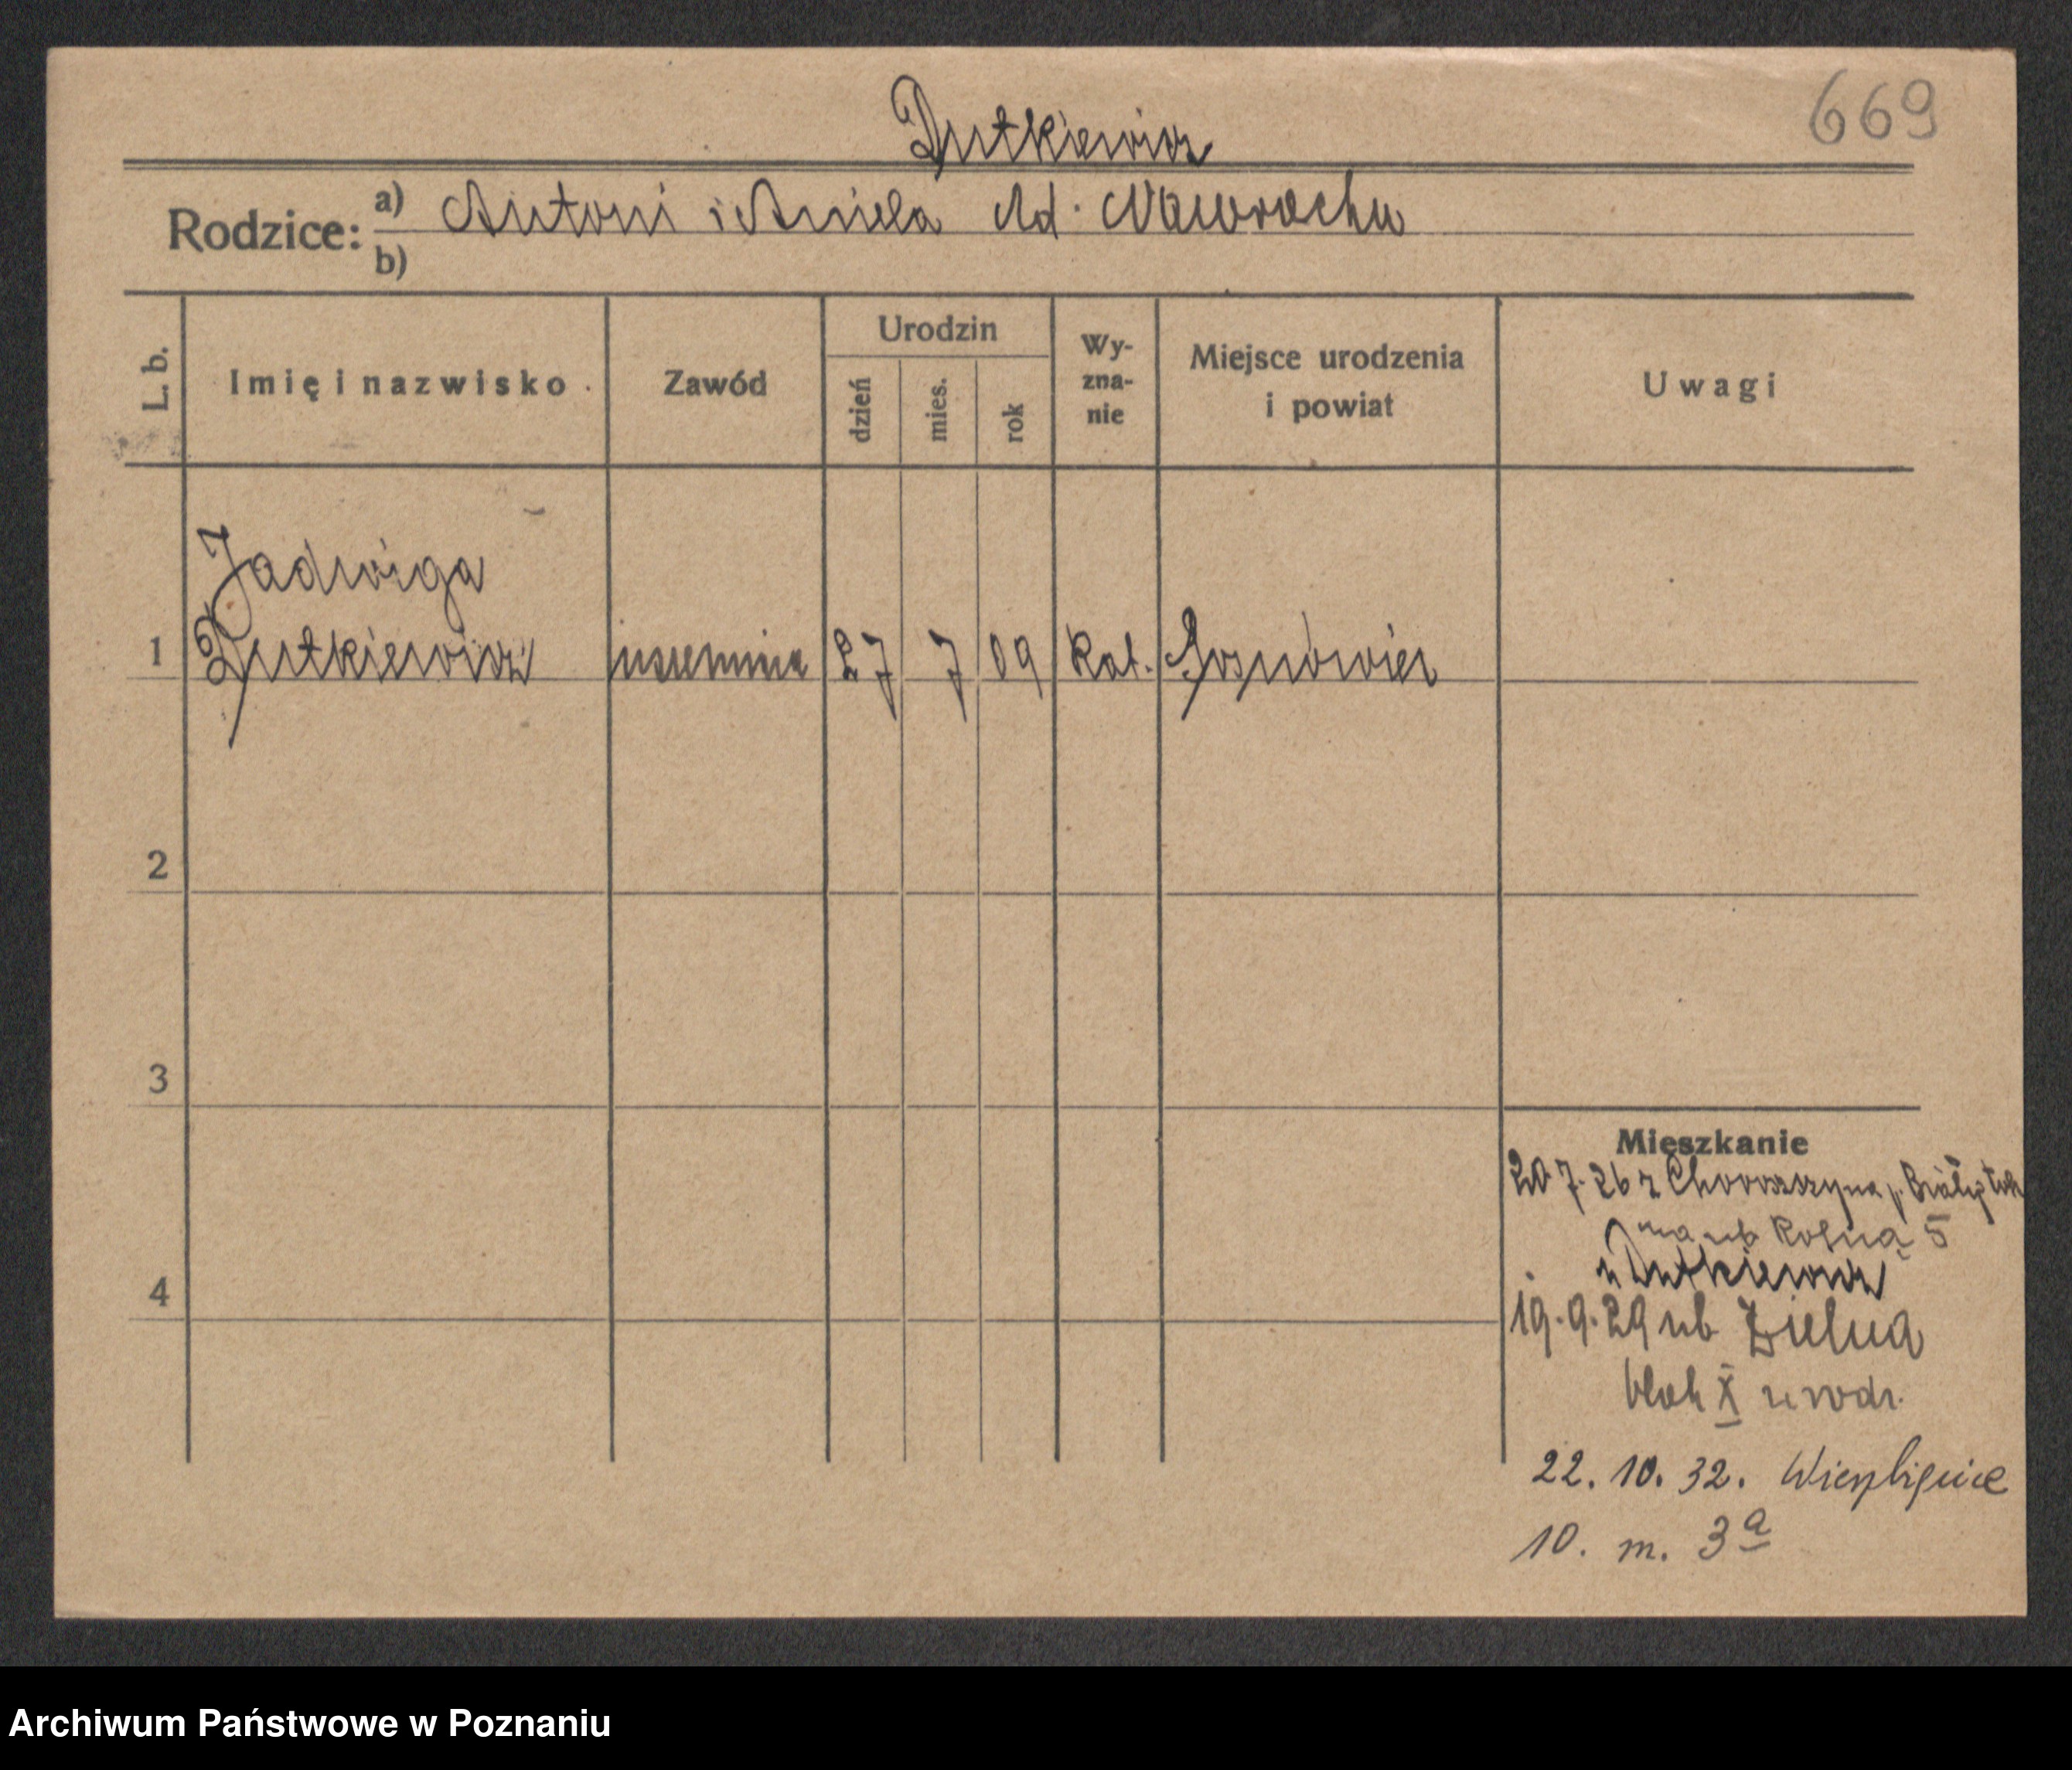 Dutkiewicz
669
Rodzice: a) Antoni i Aniela Nd. Nawrocka
b)
L. b.
Imię i nazwisko
Zawód
Urodzin
dzień
mies.
rok
Wy-
zna-
nie
Miejsce urodzenia
i powiat
Uwagi
Jadwiga
1 Dutkiewicz uczennica 27 7 09 Kat. Sosnowiec
2
3
4
Mieszkanie
20.7.26 z p. Białystok
na ul. Rolną 5
u Dutkiewicz
19.9.29 ul. Zielna
blok X u rodz.
22. 10. 32. Wierzbięcice
10. m. 3a
Archiwum Państwowe w Poznaniu